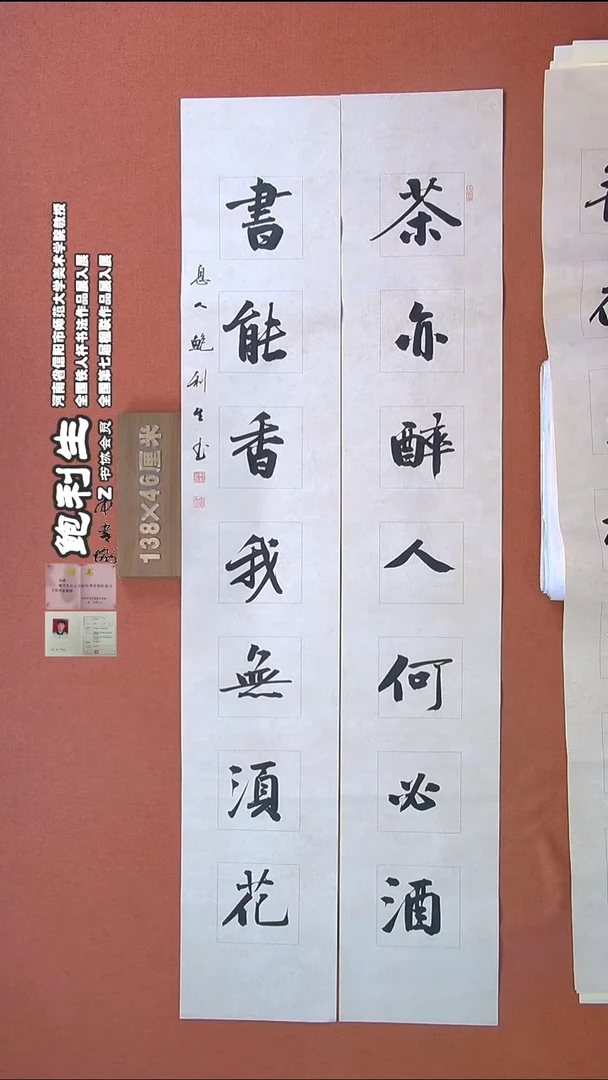 茶亦醉人何必酒
書能香我無須花
息人鲍利生书
138×46厘米
鲍利生
书协会员
河南省信阳市师范大学美术学院教授
全国铁人杯书法作品展入展
全国第七届楹联作品展入展